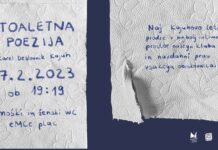 TOALETNA
POEZIJA
Karel Destovnik Kajuh
7.2.2023
ob 19:19
moški in ženski WC
eMCe plac
Naj Kajuhovo
prodre v najbolj intimne
prostore našega kluba
in navdahne prav
vsakega obiskovalca